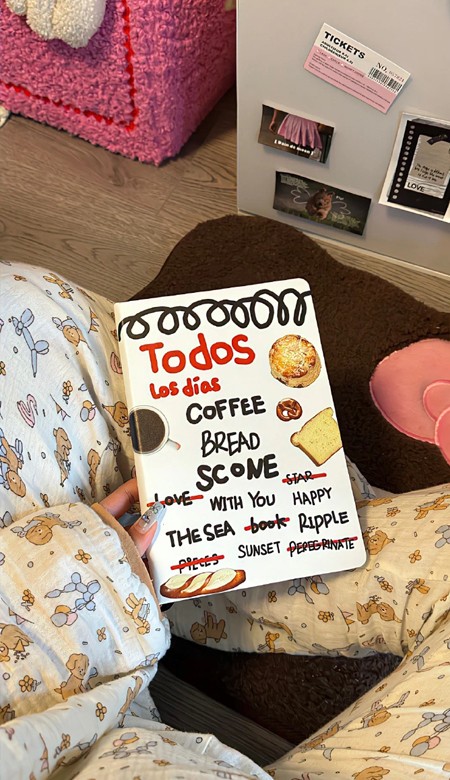 TICKETS
NO.
Todos
Los días
COFFEE
BREAD
SCONE
STAR
LOVE WITH YOU HAPPY
THE SEA book RIPPLE
PIECES SUNSET PEREGRINATE
LOVE